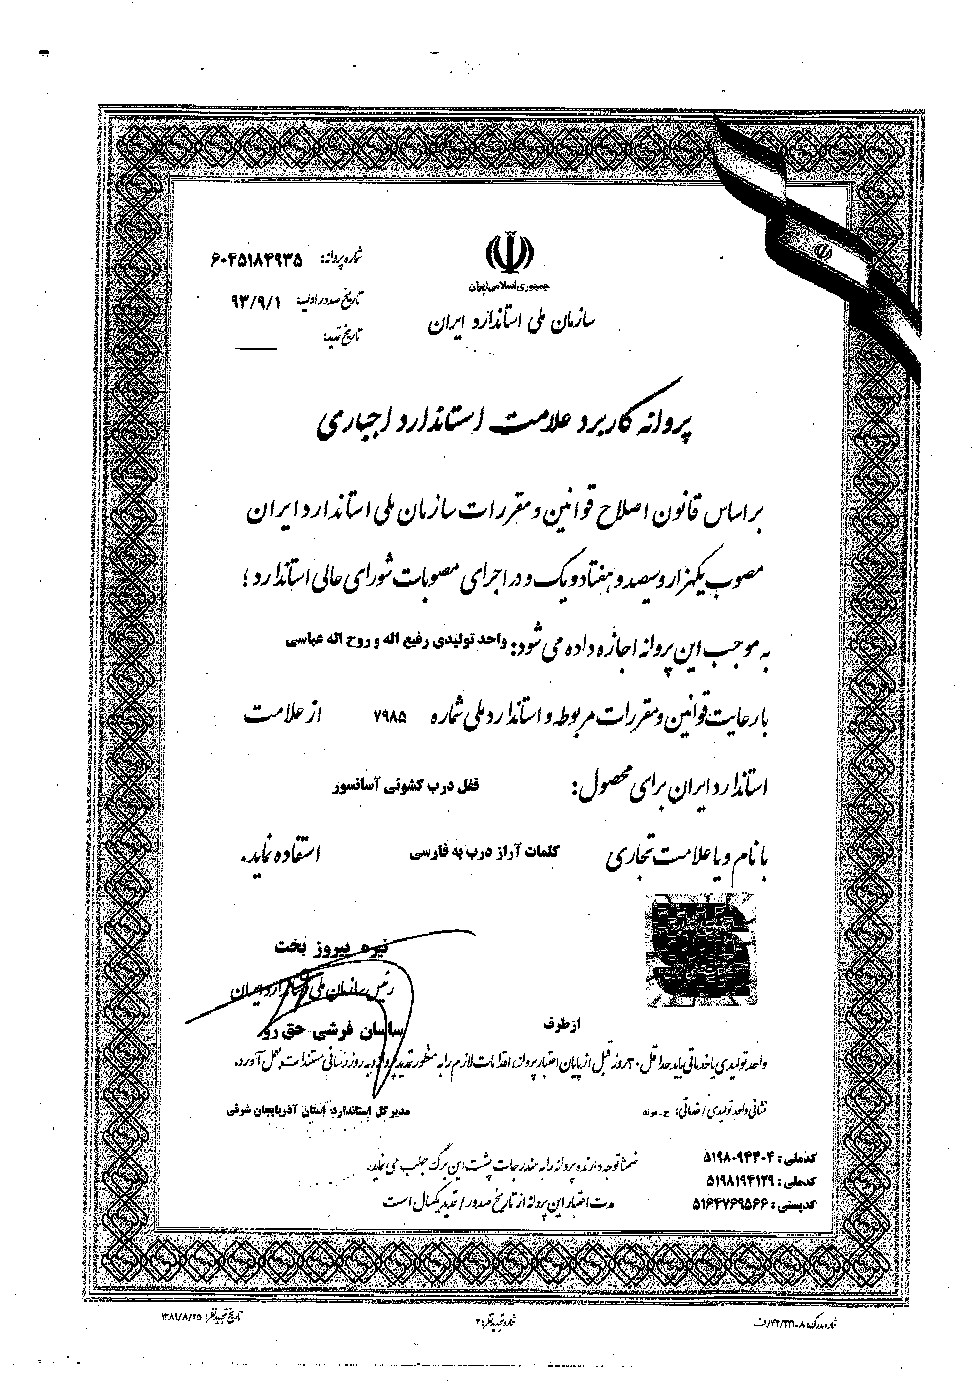 جمهوری اسلامی ایران
سازمان ملی استاندارد ایران
شماره پروانه: ۶۰۴۵۱۸۴۹۳۵
تاریخ صدور اولیه: ۹۳/۹/۱
تاریخ تمدید:
پروانه کاربرد علامت استاندارد اجباری
بر اساس قانون اصلاح قوانین و مقررات سازمان ملی استاندارد ایران
مصوب یکهزار و سیصد و هفتاد و یک و در اجرای مصوبات شورای عالی استاندارد؛
به موجب این پروانه اجازه داده می شود: واحد تولیدی رفیع اله و روح اله عباسی
با رعایت قوانین و مقررات مربوطه و استاندارد ملی شماره ۷۹۸۵ از علامت
استاندارد ایران برای محصول: قفل درب کشوئی آسانسور
با نام و یا علامت تجاری کلمات آراز درب به فارسی استفاده نماید.
نیره پیروز بخت
رئیس سازمان ملی استاندارد ایران
از طرف
ساسان فرشی حق رو
واحد تولیدی یا خدماتی باید حداقل ۳۰ روز قبل از پایان اعتبار پروانه اقدامات لازم را به منظور تمدید پروانه و به روز رسانی مستندات بعمل آورد.
مدیر کل استاندارد استان آذربایجان شرقی
نشانی واحد تولیدی / خدماتی:
کدملی: ۵۱۹۸۰۹۴۴۰۴
کدملی: ۵۱۹۸۱۹۴۱۲۹
کدپستی: ۵۱۶۴۷۶۹۵۶۶
ضمنا توجه دارنده پروانه را به مندرجات پشت این برگ جلب می نماید.
مدت اعتبار این پروانه از تاریخ صدور / تمدید یکسال است
شماره تجدیدنظر: ۲
تاریخ تجدیدنظر: ۱۳۸۹/۸/۲۵